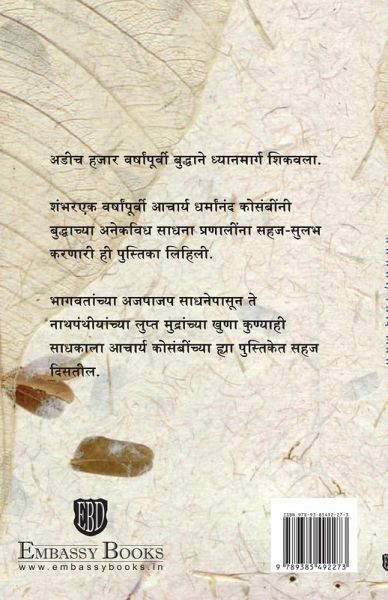 अडीच हजार वर्षांपूर्वी बुद्धाने ध्यानमार्ग शिकवला.
शंभरएक वर्षांपूर्वी आचार्य धर्मानंद कोसंबींनी
बुद्धाच्या अनेकविध साधना प्रणालींना सहज-सुलभ
करणारी ही पुस्तिका लिहिली.
भागवतांच्या अजपाजप साधनेपासून ते
नाथपंथीयांच्या लुप्त मुद्रांच्या खुणा कुण्याही
साधकाला आचार्य कोसंबींच्या ह्या पुस्तिकेत सहज
दिसतील.
EBD
EMBASSY BOOKS
www.embassybooks.in
ISBN 978-93-85492-27-3
9 789385 492273